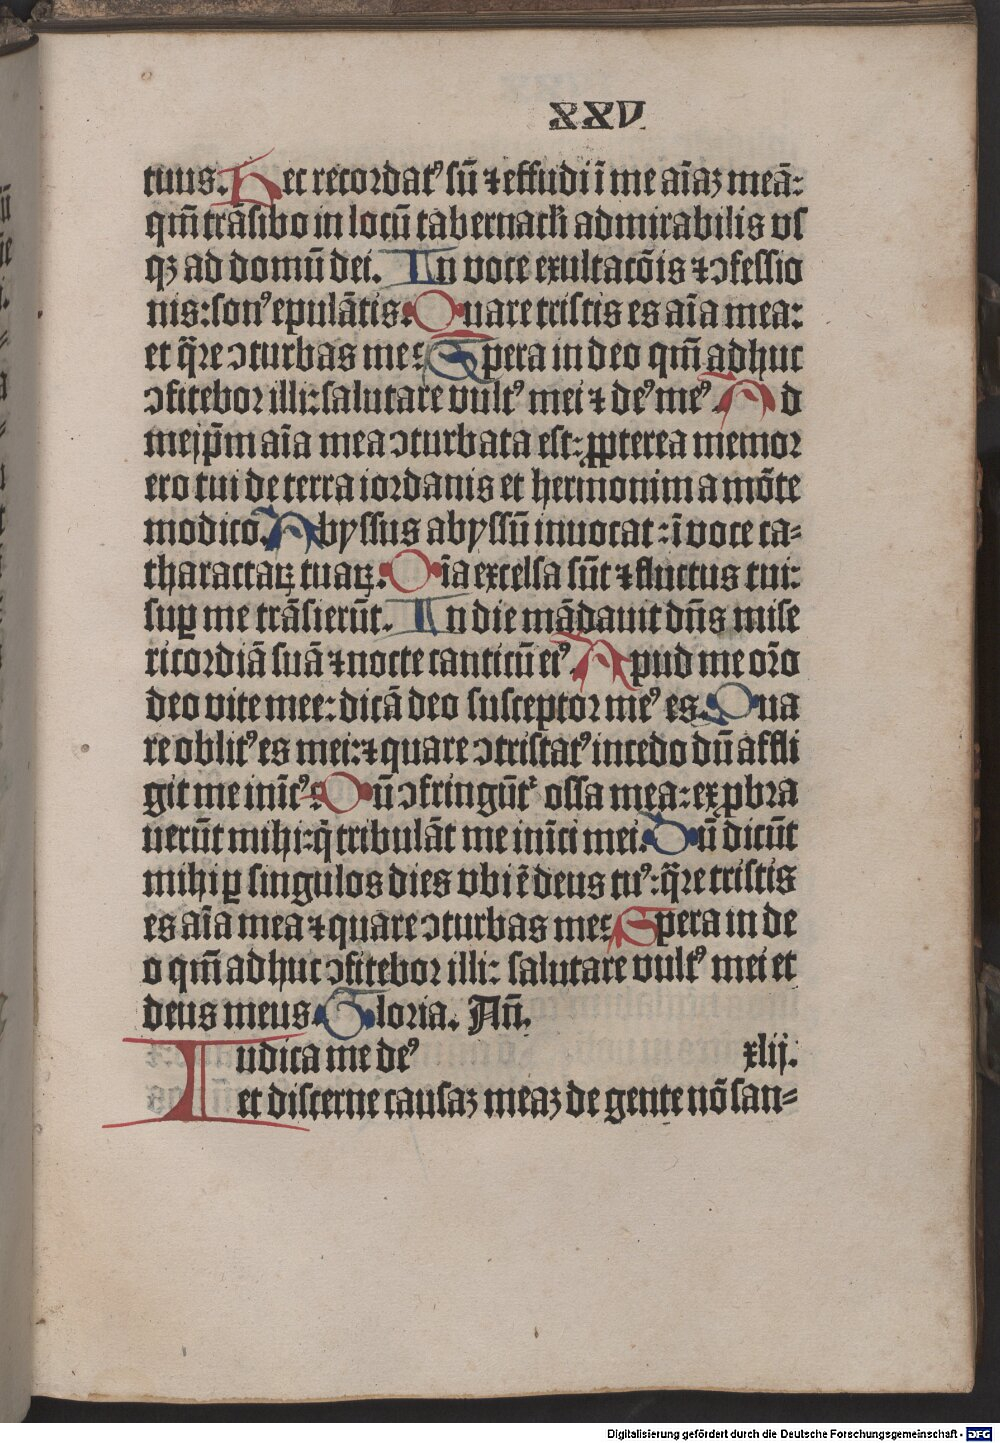 XXV
tuus. Hec recordatꝰ sū ⁊ effudi ī me aīaꝫ meā:
qm̄ trāsibo in locū tabernacl̄i admirabilis vſ
qꝫ ad domū dei. In voce exultacōis ⁊ ↄfessio
nis: sonꝰ epulātis. Quare tristis es aīa mea:
et q̄re ↄturbas me: Spera in deo qm̄ adhuc
ↄfitebor illi: salutare vultꝰ mei ⁊ deꝰ meꝰ. Ad
meip̄m aīa mea ↄturbata est: ꝓpterea memor
ero tui de terra iordanis et hermonim a mōte
modico. Abyssus abyssū inuocat: ī voce ca-
tharactaꝝ tuaꝝ. Oīa excelsa tua sūt ⁊ fluctus tui:
suꝑ me trāsierūt. In die mādauit dn̄s mise
ricordiā suā ⁊ nocte canticū eiꝰ. Apud me orō
deo vite mee: dicā deo susceptor meꝰ es. Qua
re oblitꝰ es mei: ⁊ quare ↄtristatꝰ incedo dū affli
git me inīcꝰ: Dū ↄfringūt᷑ ossa mea: exꝓbra
uerūt mihi: q̇ tribulāt me inīci mei. Dū dicūt
mihi ꝑ singulos dies vbi ē deus tuꝰ: q̄re tristis
es aīa mea ⁊ quare ↄturbas me: Spera in de
o qm̄ adhuc ↄfitebor illi: salutare vultꝰ mei et
deus meus. Gloria. An̄.
Iudica me deꝰ xlij.
et discerne causaꝫ meaꝫ de gente nō san-
Digitalisierung gefördert durch die Deutsche Forschungsgemeinschaft - DFG